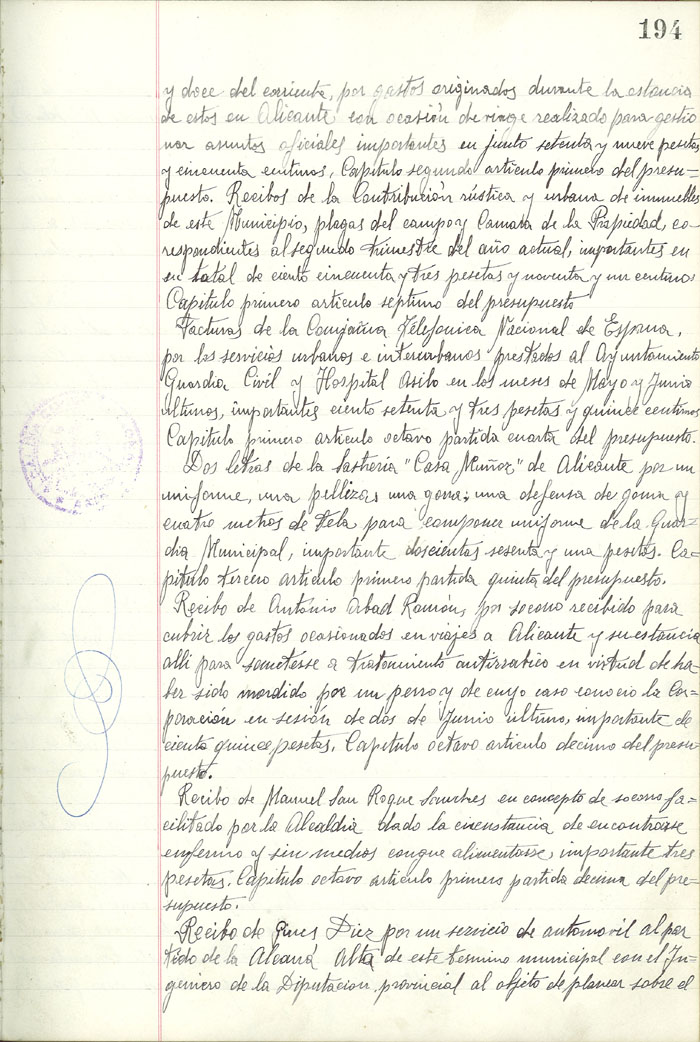 194
y doce del corriente, por gastos originados durante la estancia
de estos en Alicante con ocasión de viage realizado para gestio
nar asuntos oficiales importantes en junto setenta y nueve pesetas
y cincuenta centimos, Capítulo segundo articulo primero del presu-
puesto. Recibos de la Contribución rústica y urbana de inmuebles
de este Municipio, plagas del campo y Camara de la Propiedad, co-
rrespondientes al segundo trimestre del año actual, importantes en
su total de ciento cincuenta y tres pesetas y noventa y un centimos
Capitulo primero articulo septimo del presupuesto
Facturas de la Compañia Telefonica Nacional de España,
por los servicios urbanos e interurbanos prestados al Ayuntamiento
Guardia Civil y Hospital Asilo en los meses de Mayo y Junio
ultimos, importantes ciento setenta y tres pesetas y quince centimos
Capitulo primero articulo octavo partida cuarta del presupuesto.
Dos letras de la sastreria "Casa Muñoz" de Alicante por un
uniforme, una pelliza, una gorra, una defensa de goma y
cuatro metros de tela para componer uniforme de la Guar-
dia Municipal, importante doscientas sesenta y una pesetas. Ca-
pitulo tercero articulo primero partida quinta del presupuesto.
Recibo de Antonio Abad Ramón, por socorro recibido para
cubrir los gastos ocasionados en viajes a Alicante y su estancia
alli para sometesse a tratamiento antirrabico en virtud de ha-
ber sido mordido por un perro y de cuyo caso conocio la Cor-
poracion en sesión de dos de Junio ultimo, importante de
ciento quince pesetas, Capitulo octavo articulo decimo del presu-
puesto.
Recibo de Manuel San Roque Sanches en concepto de socorro fa-
cilitado por la Alcaldia dado la circunstancia de encontrarse
enfermo y sin medios conque alimentarse, importante tres
pesetas. Capitulo octavo articulo primero partida decima del pre-
supuesto.
Recibo de Gines Diez por un servicio de automovil al par
tido de la Alcaná Alta de este termino municipal con el In-
geniero de la Diputacion provincial al objeto de planear sobre el